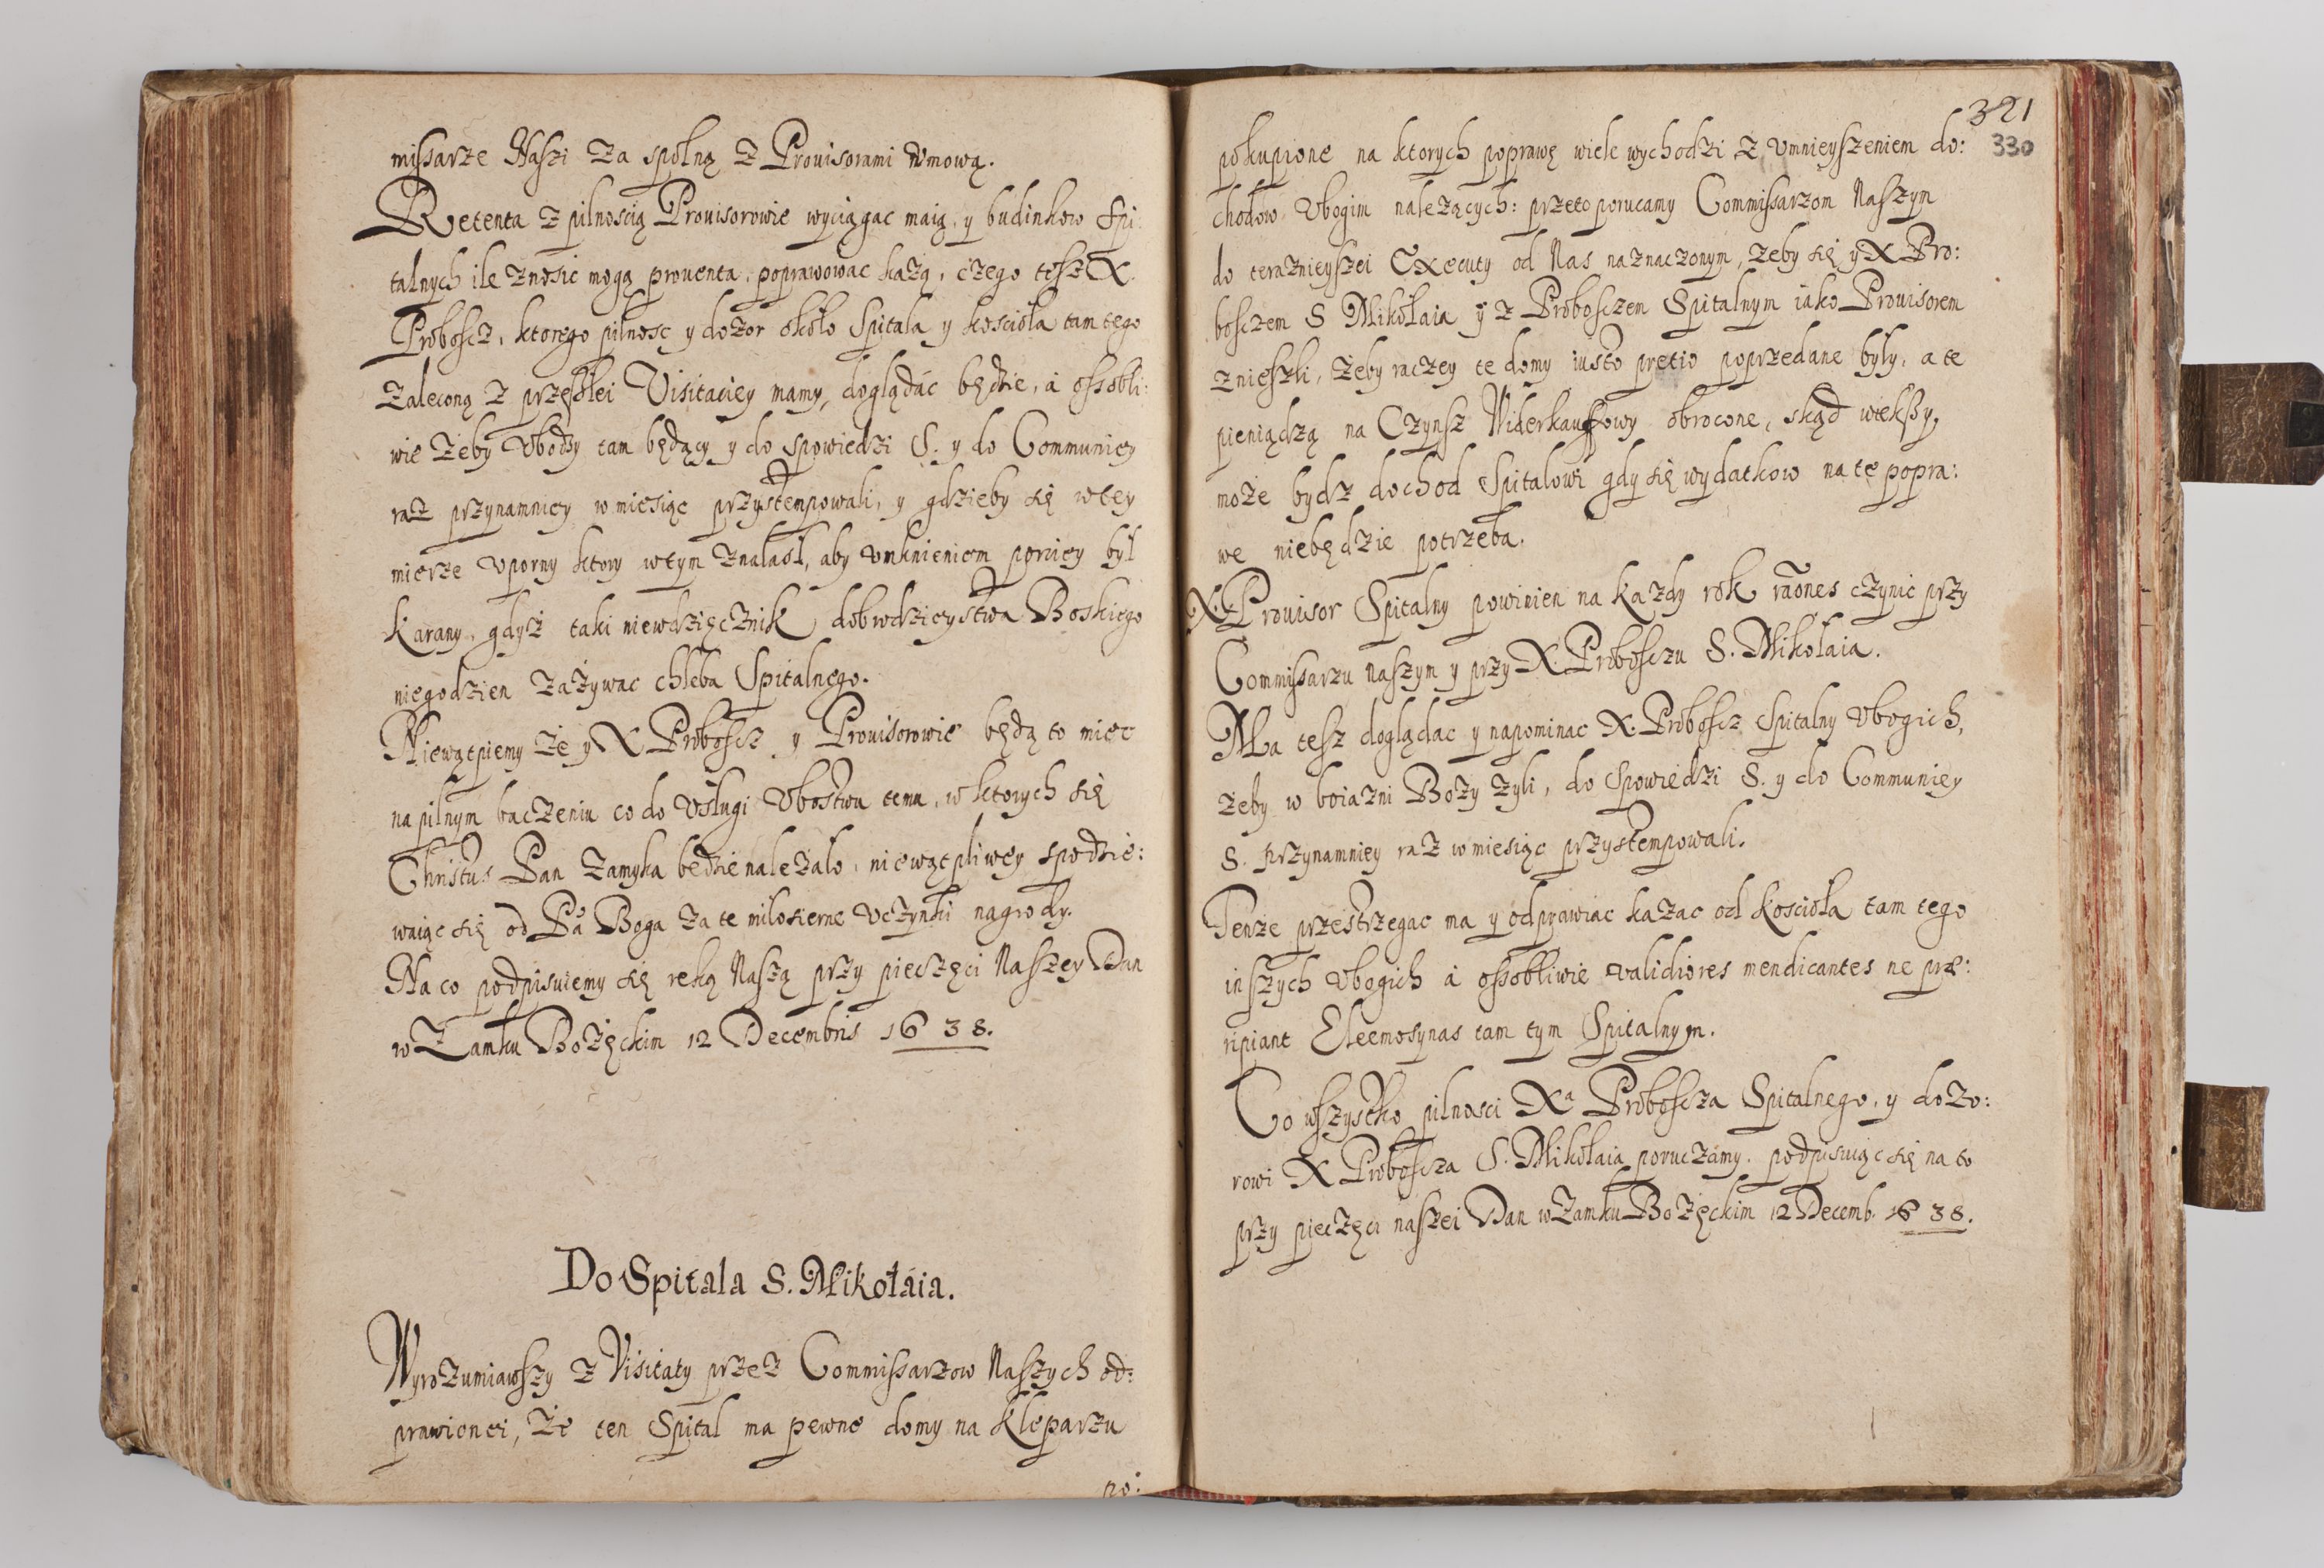 missarze Naszi za spolną z Prouisorami vmową.
Retenta z pilnoscią Prouisorowie wyciągac maią, y budinkow Spi
talnych ile znosic mogą prouenta, poprawowac każą, czego tesz X.
Proboscz, ktorego pilnosc y dozor około Spitala y koscioła tam tego
zaleconą z przeszłei Visitaciey mamy, doglądác będzie, á ossobli:
wie żeby Vbodzy tam będący y do spowiedzi S. y do Communiey
raz przynamniey w miesiąc przystempowali, y gdzieby się w tey
mierze vporny ktory w tym znalasł, aby vmknieniem porciey był
karany, gdysz taki niewdzięcznik dobrodzieystwa Boskiego
niegodzien zażywac chleba Spitalnego.
Niewątpiemy że y X Proboscz y Prouisorowie będą to miec
na pilnym baczeniu co do Vsługi Vbostwu temu, w ktorych się
Christus Pan zamyka bedzie nalezało, niewątpliwey spodzie:
waiąc się od Pa Boga za te milosierne vczynki nagrody.
Na co podpisuiemy się reką Naszą przy pieczęci Naszey Dan
w Zamku Bożęckim 12 Decembris 1638.
Do Spitala S. Mikołáia.
Wyrozumiawszy z Visitaty przez Commissarzow Naszych od:
prawionei, Że ten Spital ma pewne domy na Kleparzu
po:
321
330
pokupione na ktorych poprawę wiele wychodzi z vmnieyszeniem do:
chodow Vbogim należących: przeto porucamy Commissarzom Naszym
do teraznieyszei Executy od Nas naznaczonym, żeby się y X Pro:
bosczem S Mikołaia y z Probosczem Spitalnym iáko Prouisorem
znieszli, żeby raczey te domy iusto pretio poprzedane były, a te
pieniądzą na Czynsz Widerkauffowy obrocone, skąd wiekszy,
może bydz dochod Spitalowi gdy się wydatkow na tę popra:
we niebędzie potrzeba.
X. Prouisor Spitalny powinien na każdy rok raões czynic przy
Commissarzu naszym y przy X. Probosczu S. Mikołaia.
Ma tesz doglądac y napominac X. Proboscz Spitalny Vbogich,
żeby w boiazni Boży żyli, do Spowiedzi S. y do Communiey
S. przynamniey raz w miesiąc przystempowali.
Tenże przestrzegac ma y odprawiac kazac od koscioła tam tego
inszych Vbogich á ossobliwie validiores mendicantes ne præ:
ripiant Eleemosynas tam tym Spitalnym.
Co wszystko pilnosci Xa Proboscza Spitalnego, y dozo:
rowi X Proboscza S. Mikołaia poruczámy, podpisuiąc się na to
przy pieczęci naszei Dan w Zamku Bożęckim 12 Decemb. 1638.